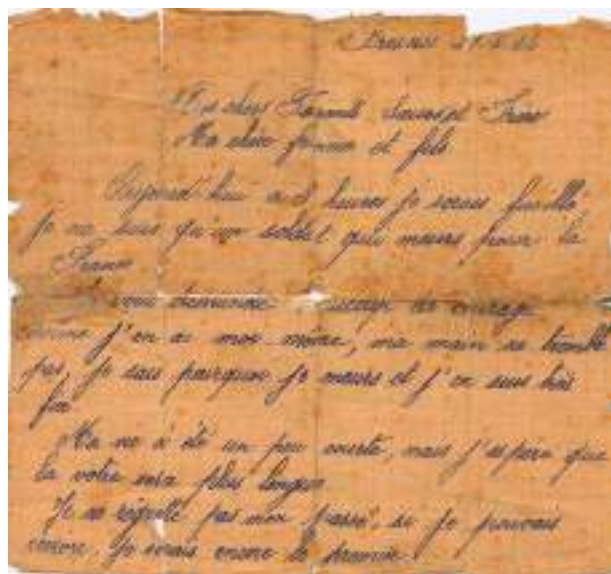 Fresnes
Mes chers Parents et Frère
Ma chère femme et fils
Aujourd'hui à 3 heures je serais fusillé,
je ne suis qu'un soldat qui meurs pour la
France
Je vous demande beaucoup de courage
comme j'en ai moi même, ma main ne tremble
pas, je sais pourquoi je meurs et j'en suis très
fier
Ma vie à été un peu courte, mais j'espère que
la votre sera plus longue
Je ne regrette pas mon passé, si je pouvais
encore, je serais encore le premier.